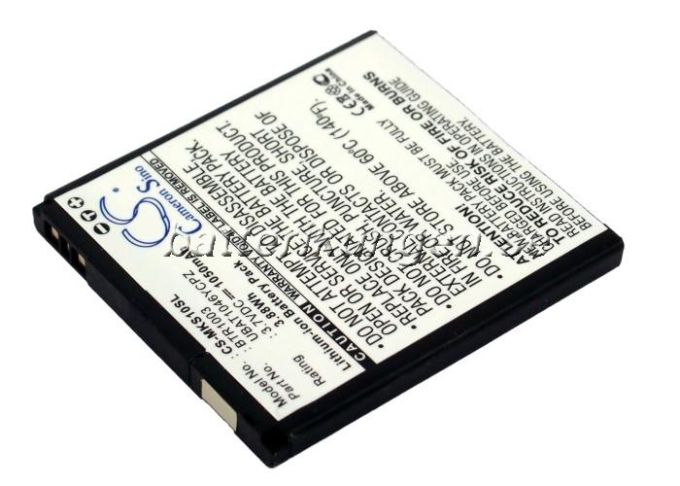 CS
Cameron Sino
CS-MKS10SL
Model No.: BTR1003
Part No.: UBAT1046YCPZ
Rating: 3.7VDC 1050m
3.88Wh
Lithium-ion Battery Pack
WARRANTY IS VOID IF THIS LABEL IS REMOVED.
DO NOT ATTEMPT TO DISASSEMBLE
OPEN OR SERVICE THE BATTERY PACK.
PACK DESIGNED FOR THIS PRODUCT.
DO NOT CRUSH, PUNCTURE, SHORT
EXTERNAL CONTACTS OR DISPOSE OF
IN FIRE OR WATER.
DO NOT STORE ABOVE 60℃ (140℉).
BATTERY PACK MUST BE FULLY
CHARGED BEFORE USE.
TO REDUCE RISK OF FIRE OR BURNS
READ INSTRUCTIONS IN OPERATING GUIDE
BEFORE USING THE BATTERY.
CE
Made in China